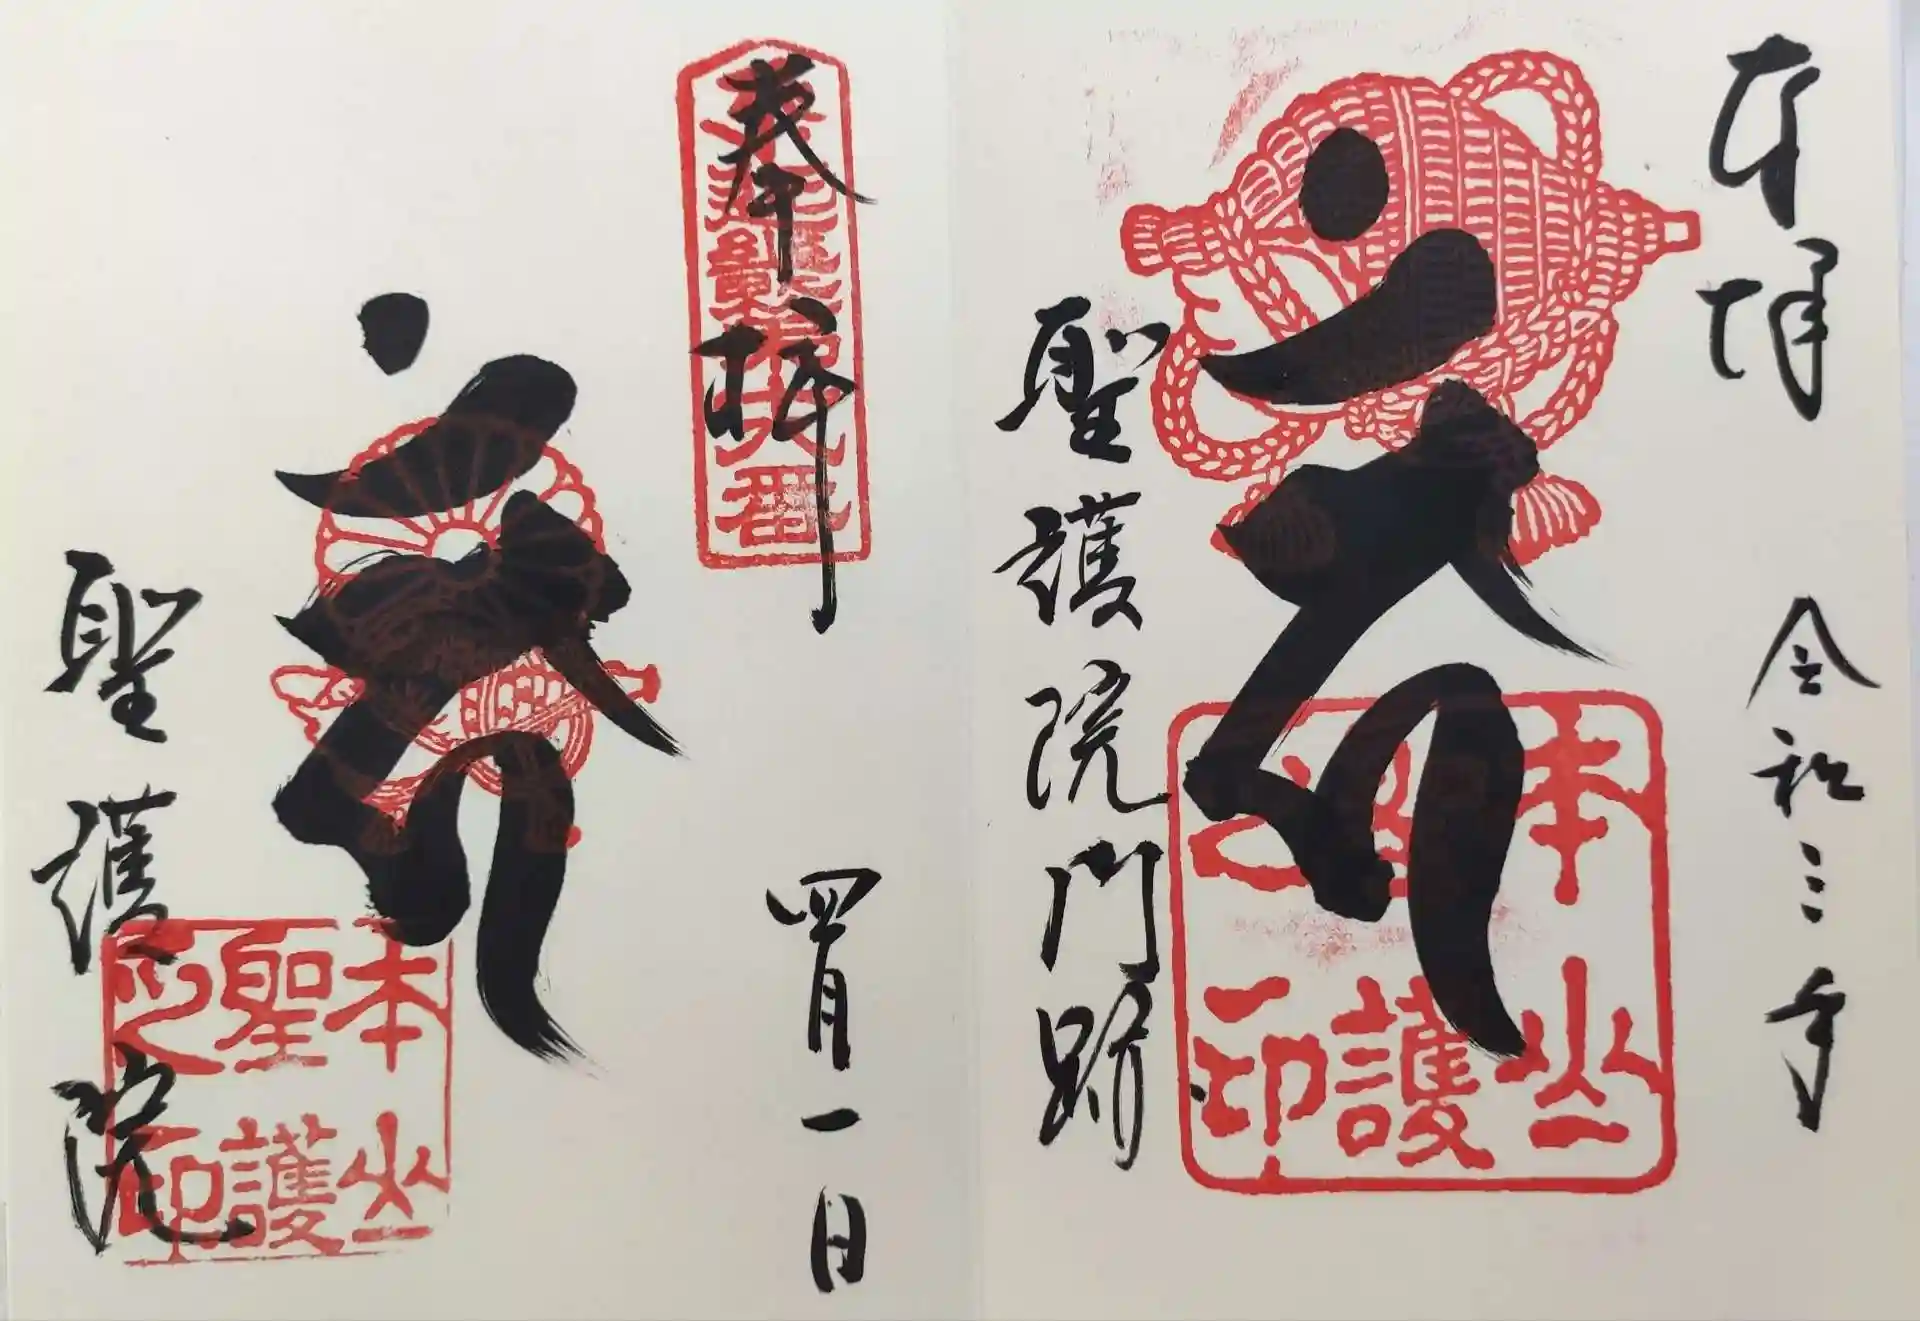 奉拝 令和三年
本山
聖護
之印
聖護院門跡
奉拝
四月一日
本山
聖護
之印
聖護院